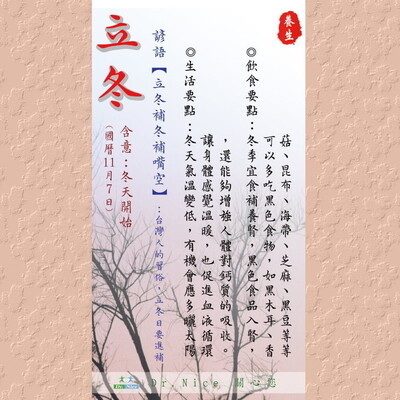 養生
立冬
含意：冬天開始
（國曆11月7日）
諺語【立冬補冬補嘴空】：台灣人的習俗，立冬日要進補
◎生活要點：冬天氣溫變低，有機會應多曬太陽
讓身體感覺溫暖，也促進血液循環
，還能夠增強人體對鈣質的吸收。
◎飲食要點：冬季宜食補養腎，黑色食品入腎，
可以多吃黑色食物，如黑木耳、香
菇、昆布、海帶、芝麻、黑豆等等
Dr.Nice 關心您